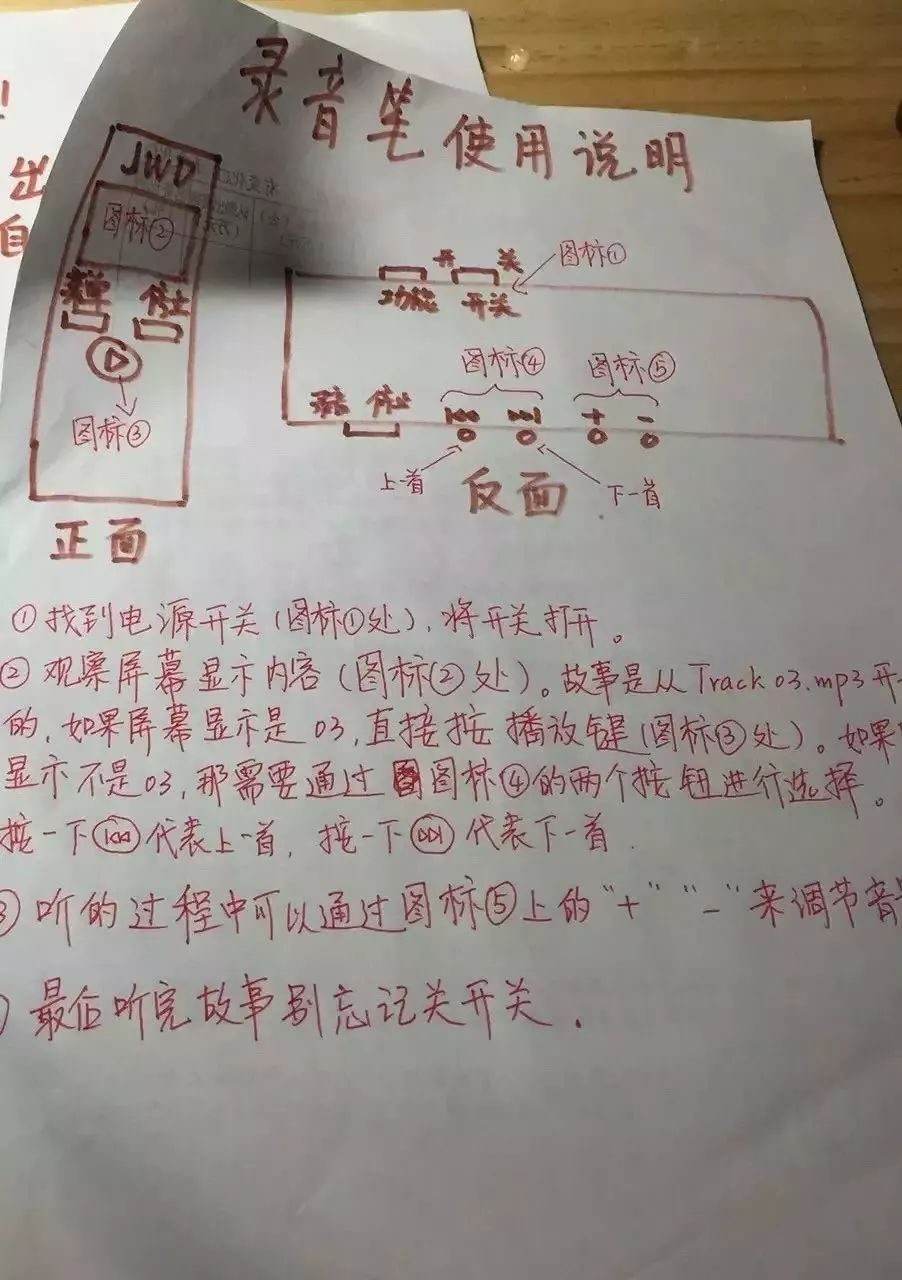 录音笔使用说明
！
出
自
JWD
图标②
菜单 停止
图标③
正面
开 关
图标①
功能 开关
图标④ 图标⑤
录音 停止
+ -
上一首 下一首
反面
①找到电源开关(图标①处),将开关打开。
②观察屏幕显示内容(图标②处)。故事是从Track 03.mp3开
的,如果屏幕显示是03,直接按播放键(图标③处)。如果
显示不是03,那需要通过图标④的两个按钮进行选择。
按一下⏮代表上一首,按一下⏭代表下一首.
③听的过程中可以通过图标⑤上的"+""-"来调节音
最后听完故事别忘记关开关.